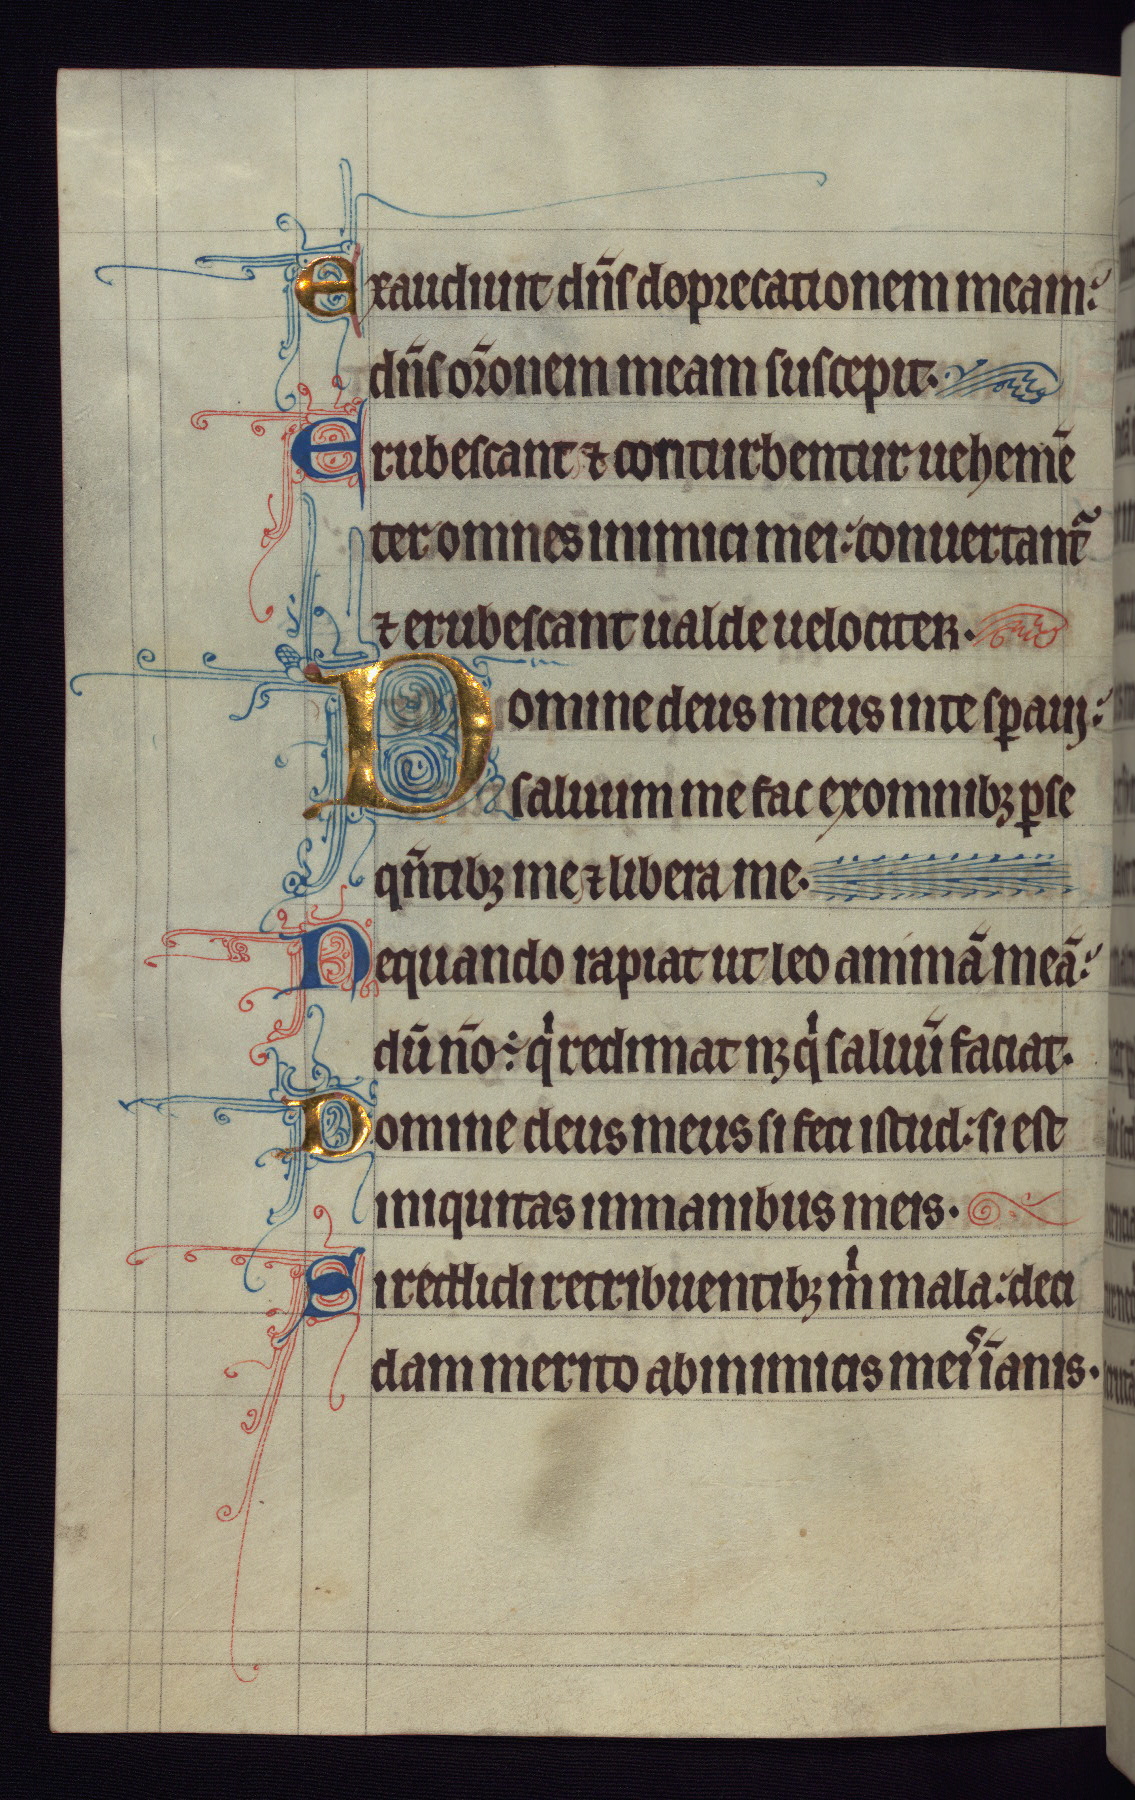 Exaudiuit dn̄s dopꝛecationem meam:
dn̄s or̄onem meam suscepit.
Erubescant ⁊ conturbentur uehemē
ter omnes inimici mei: conuertant᷑
⁊ erubescant ualde uelociter.
Domine deus meus in te sꝑaui:
saluum me fac ex omnibꝫ ꝑse
qn̄tibꝫ me ⁊ libera me.
Nequando rapiat ut leo animā meā:
dū nō: qͥ redimat nꝫ qͥ saluū faciat.
Domine deus meus si feci istud: si est
iniquitas in manibus meis.
Si reddidi retribuentibꝫ mͥ mala: deci
dam merito ab inimicis meiˢ īanis.